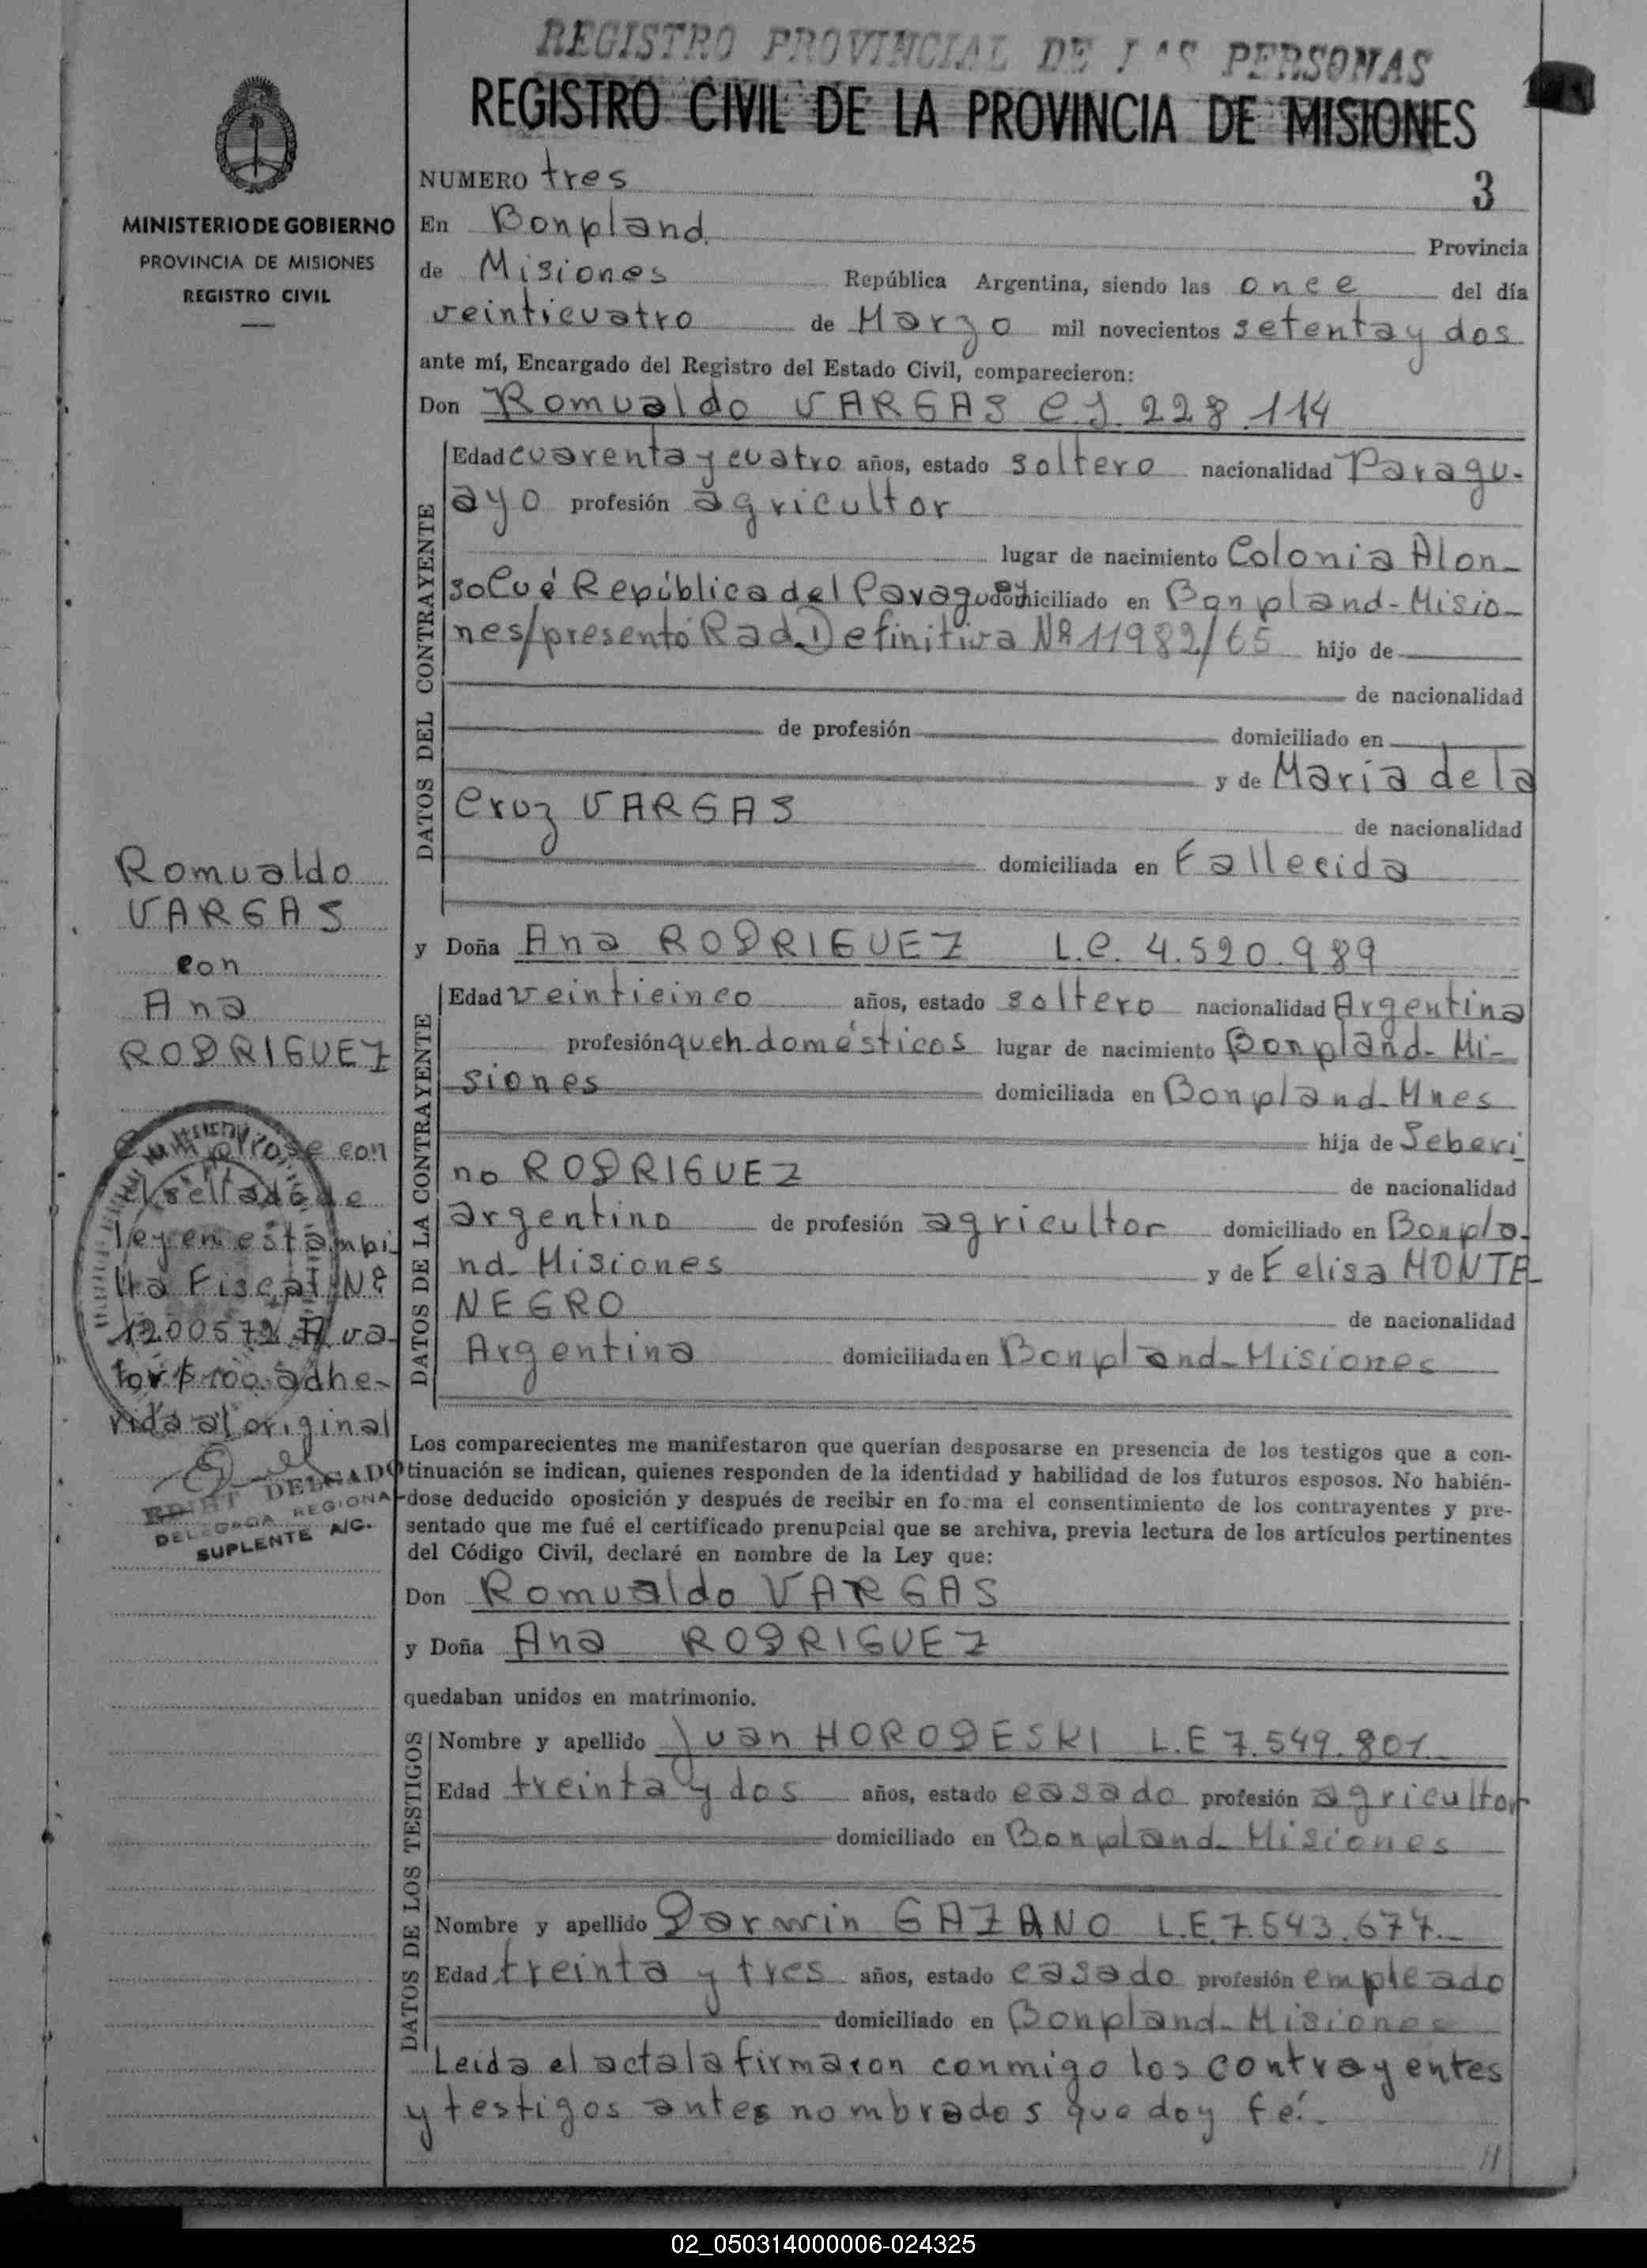 REGISTRO PROVINCIAL DE LAS PERSONAS
REGISTRO CIVIL DE LA PROVINCIA DE MISIONES
MINISTERIO DE GOBIERNO
PROVINCIA DE MISIONES
REGISTRO CIVIL
NUMERO tres 3
En Bonpland. Provincia
de Misiones República Argentina, siendo las once del día
veinticuatro de Marzo mil novecientos setenta y dos
ante mí, Encargado del Registro del Estado Civil, comparecieron:
Don Romualdo VARGAS C.I. 228.114
DATOS DEL CONTRAYENTE
Edad cuarenta y cuatro años, estado soltero nacionalidad Paragu-
ayo profesión agricultor
lugar de nacimiento Colonia Alon-
so Cué República del Paraguay domiciliado en Bonpland-Misio-
nes/presentó Rad. Definitiva Nº 11982/65 hijo de
de nacionalidad
de profesión domiciliado en
y de María de la
Cruz VARGAS de nacionalidad
domiciliada en Fallecida
y Doña Ana RODRIGUEZ L.C. 4.520.989
DATOS DE LA CONTRAYENTE
Edad veinticinco años, estado soltero nacionalidad Argentina
profesión queh. domésticos lugar de nacimiento Bonpland-Mi-
siones domiciliada en Bonpland-Mnes
hija de Seberi
no RODRIGUEZ de nacionalidad
argentino de profesión agricultor domiciliado en Bonpla-
nd-Misiones y de Felisa MONTE
NEGRO de nacionalidad
Argentina domiciliada en Bonpland-Misiones
Romualdo
VARGAS
con
Ana
RODRIGUEZ
con
el sellado de
ley en estampi-
lla Fiscal Nº
1200572 A va-
lor $ 100. adhe-
rida al original
DELGADO
DELEGADA REGIONAL
SUPLENTE A/C.
Los comparecientes me manifestaron que querían desposarse en presencia de los testigos que a con-
tinuación se indican, quienes responden de la identidad y habilidad de los futuros esposos. No habién-
dose deducido oposición y después de recibir en forma el consentimiento de los contrayentes y pre-
sentado que me fué el certificado prenupcial que se archiva, previa lectura de los artículos pertinentes
del Código Civil, declaré en nombre de la Ley que:
Don Romualdo VARGAS
y Doña Ana RODRIGUEZ
quedaban unidos en matrimonio.
DATOS DE LOS TESTIGOS
Nombre y apellido Juan HORODESKI L.E 7.549.801
Edad treinta y dos años, estado casado profesión agricultor
domiciliado en Bonpland-Misiones
Nombre y apellido Darwin GAZANO L.E. 7.543.677.
Edad treinta y tres años, estado casado profesión empleado
domiciliado en Bonpland-Misiones
Leida el acta la firmaron conmigo los contrayentes
y testigos antes nombrados que doy fé.-
//
02_050314000006-024325